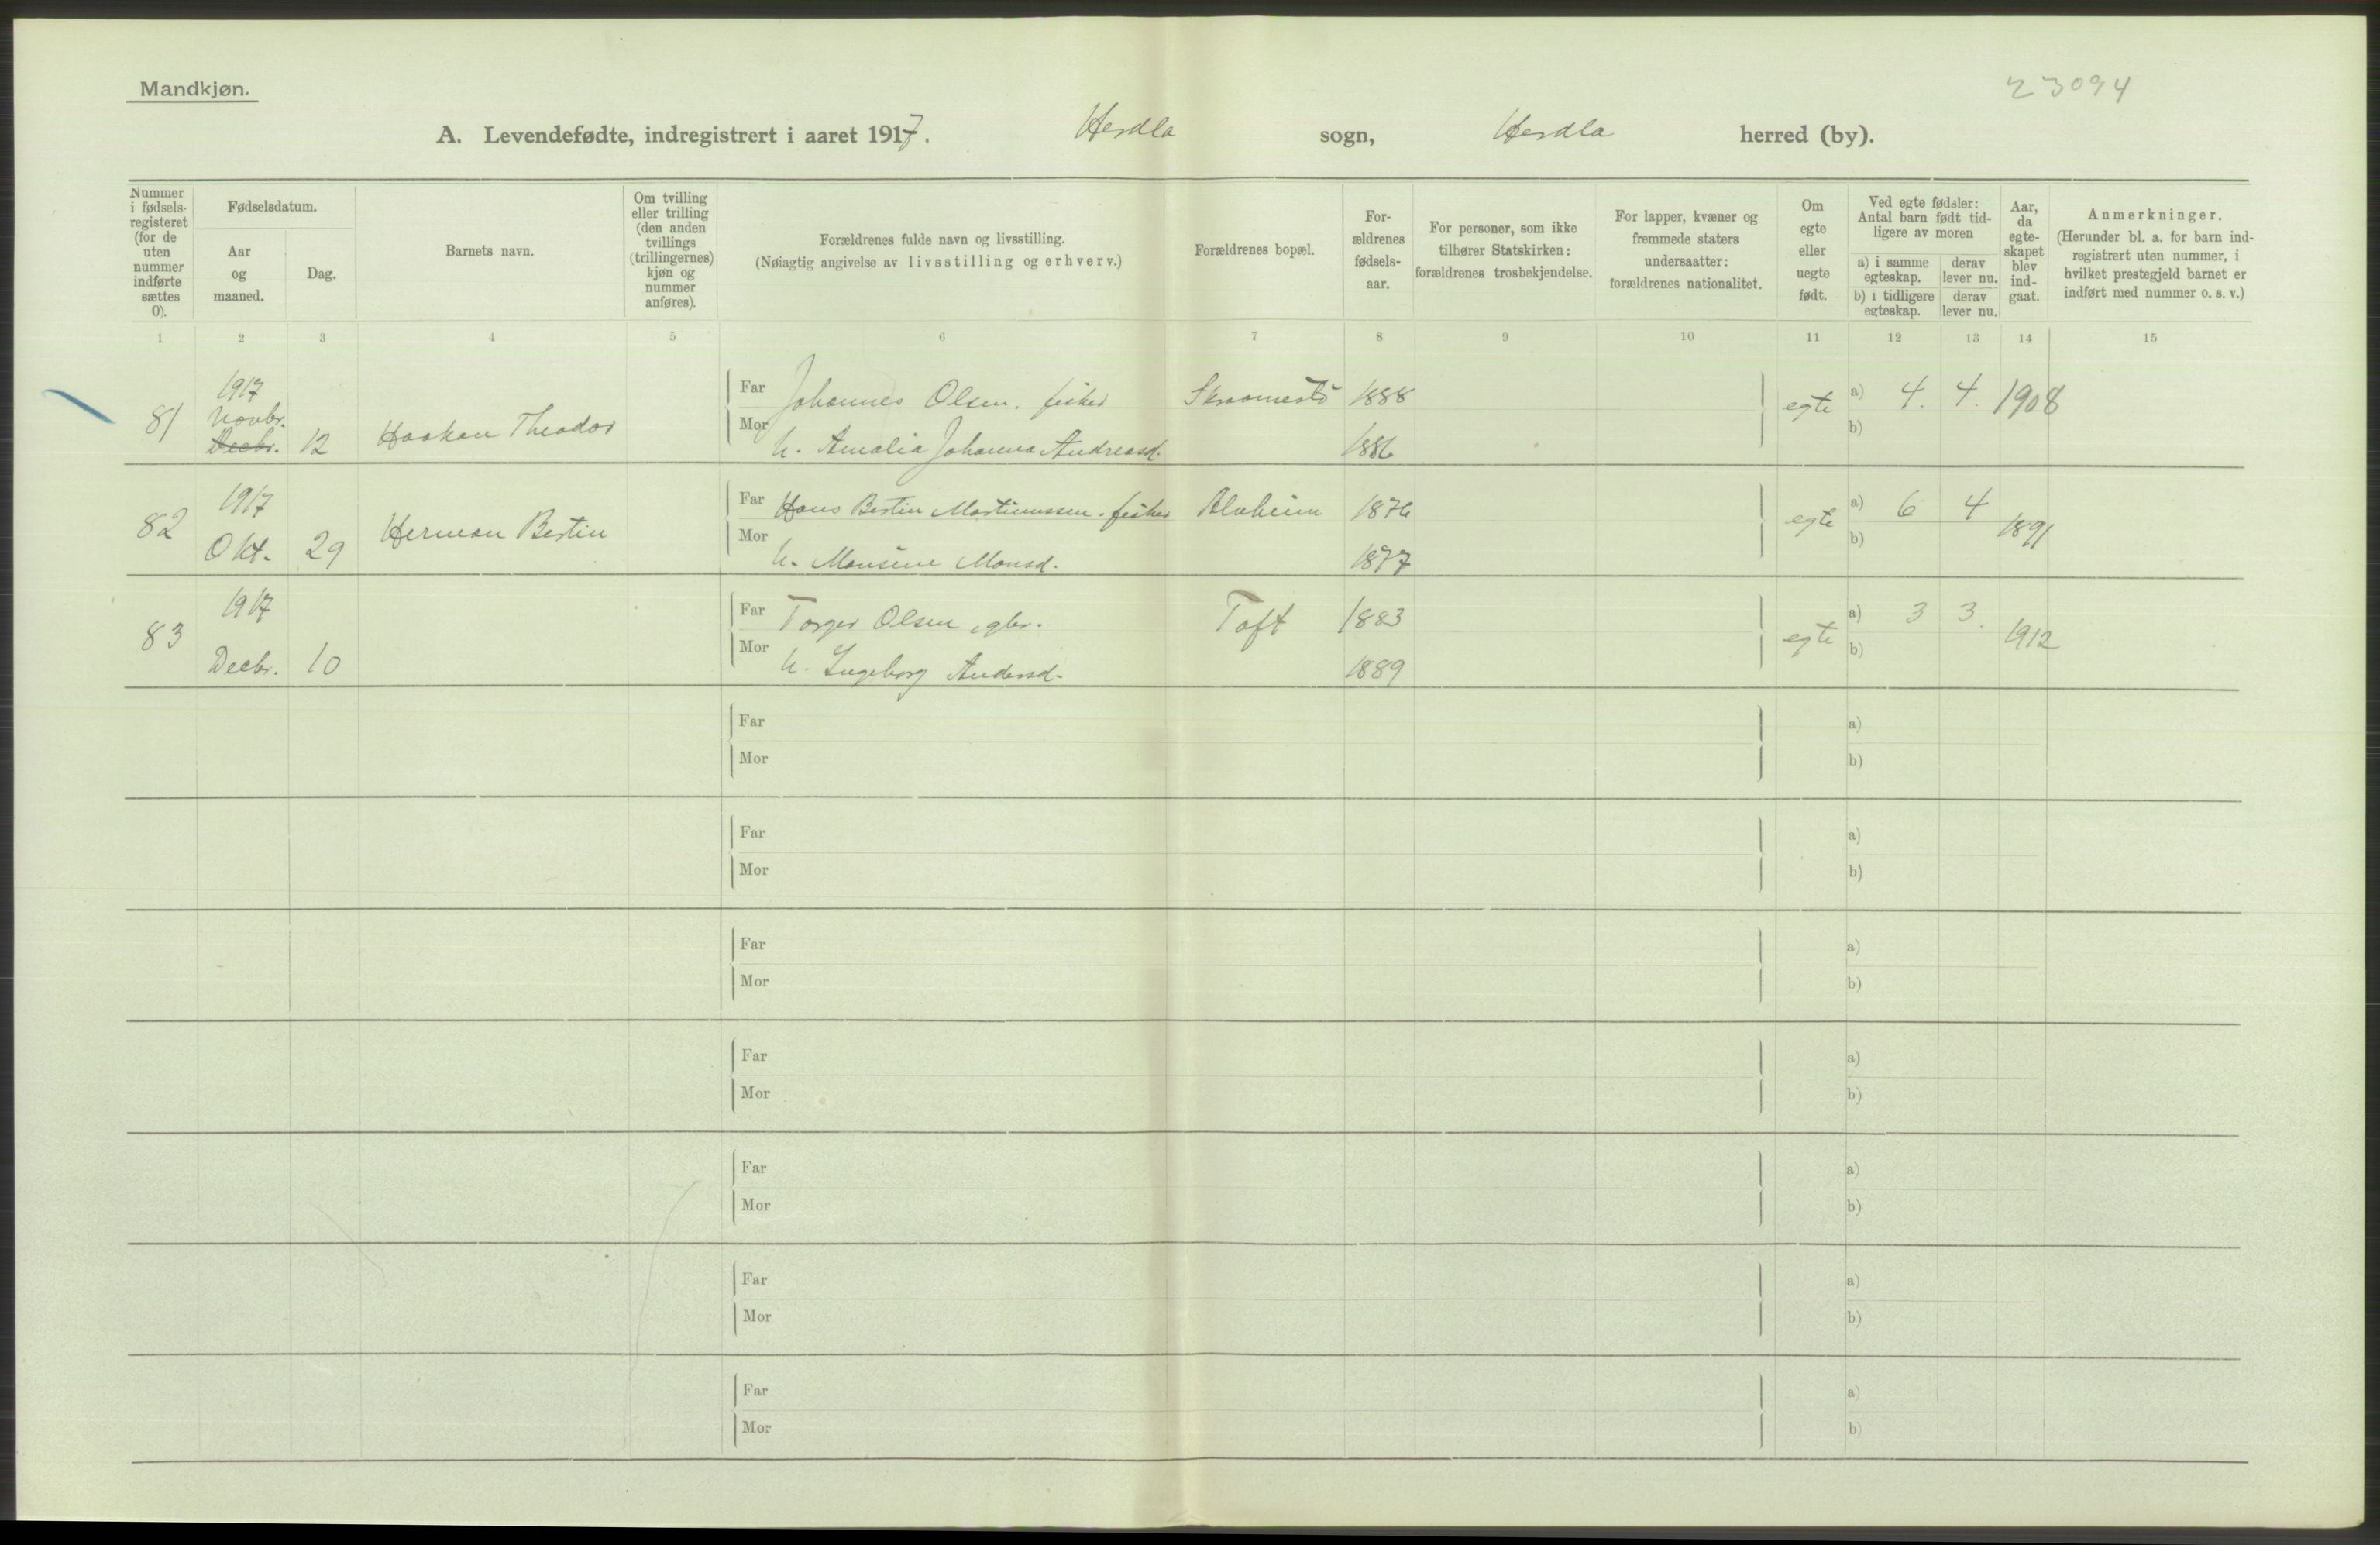 Mandkjøn.
23094
A. Levendefødte, indregistrert i aaret 1917. Herdla sogn, Herdla herred (by).
Nummer i fødsels-registeret (for de uten nummer indførte sættes 0).
Fødselsdatum.
Aar og maaned.
Dag.
Barnets navn.
Om tvilling eller trilling (den anden tvillings (trillingernes) kjøn og nummer anføres).
Forældrenes fulde navn og livsstilling.
(Nøiagtig angivelse av livsstilling og erhverv.)
Forældrenes bopæl.
For-ældrenes fødsels-aar.
For personer, som ikke tilhører Statskirken: forældrenes trosbekjendelse.
For lapper, kvæner og fremmede staters undersaatter: forældrenes nationalitet.
Om egte eller uegte født.
Ved egte fødsler: Antal barn født tid-ligere av moren
a) i samme egteskap. derav lever nu.
b) i tidligere egteskap. derav lever nu.
Aar, da egte-skapet blev ind-gaat.
Anmerkninger.
(Herunder bl. a. for barn ind-registrert uten nummer, i hvilket prestegjeld barnet er indført med nummer o. s. v.)
1 2 3 4 5 6 7 8 9 10 11 12 13 14 15
81 1917 Novbr. Decbr. 12 Haakon Theodor
Far Johannes Olsen, fisker 1888 egte a) 4. 4. 1908
Mor h. Amalia Johanna Andreasd. 1886 b)
82 1917 Okt. 29 Herman Bertin
Far Hans Bertin Martinussen, fisker Alvheim 1876 egte a) 6 4 1891
Mor h. Monsine Monsd. 1877 b)
83 1917 Decbr. 10
Far Torger Olsen, gbr. Toft 1883 egte a) 3 3. 1912
Mor h. Ingeborg Andersd. 1889 b)
Far a)
Mor b)
Far a)
Mor b)
Far a)
Mor b)
Far a)
Mor b)
Far a)
Mor b)
Far a)
Mor b)
Far a)
Mor b)